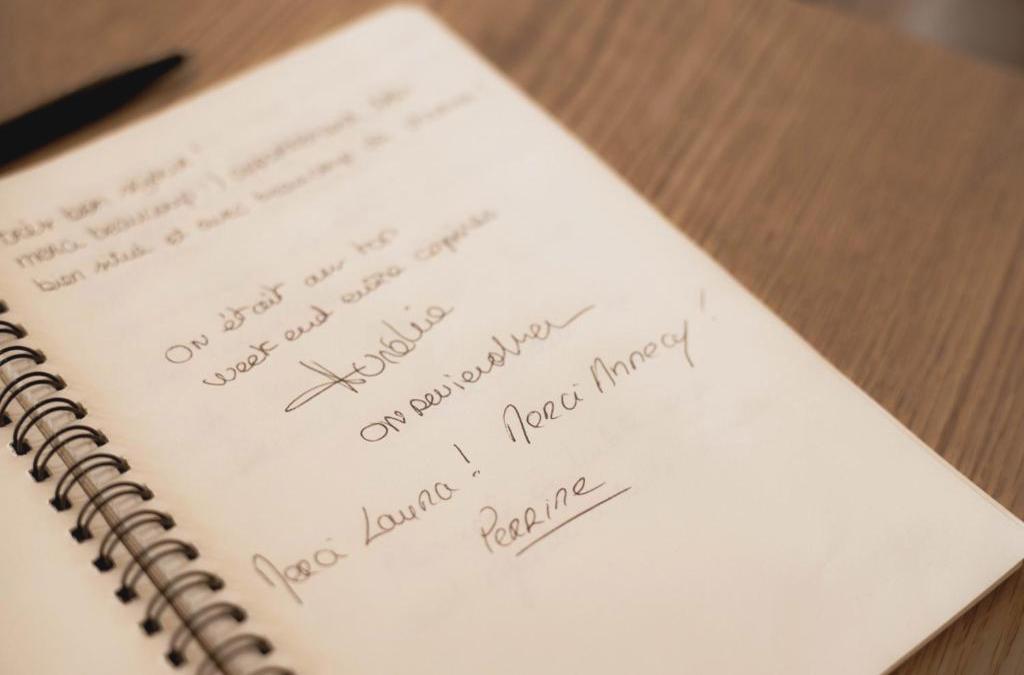 bon séjour !
merci beaucoup !
bien situé et avec beaucoup de
ON était au top
week end entre copines
Aurélie
ON reviendra
Merci Laura ! Merci Annecy !
PERRINE